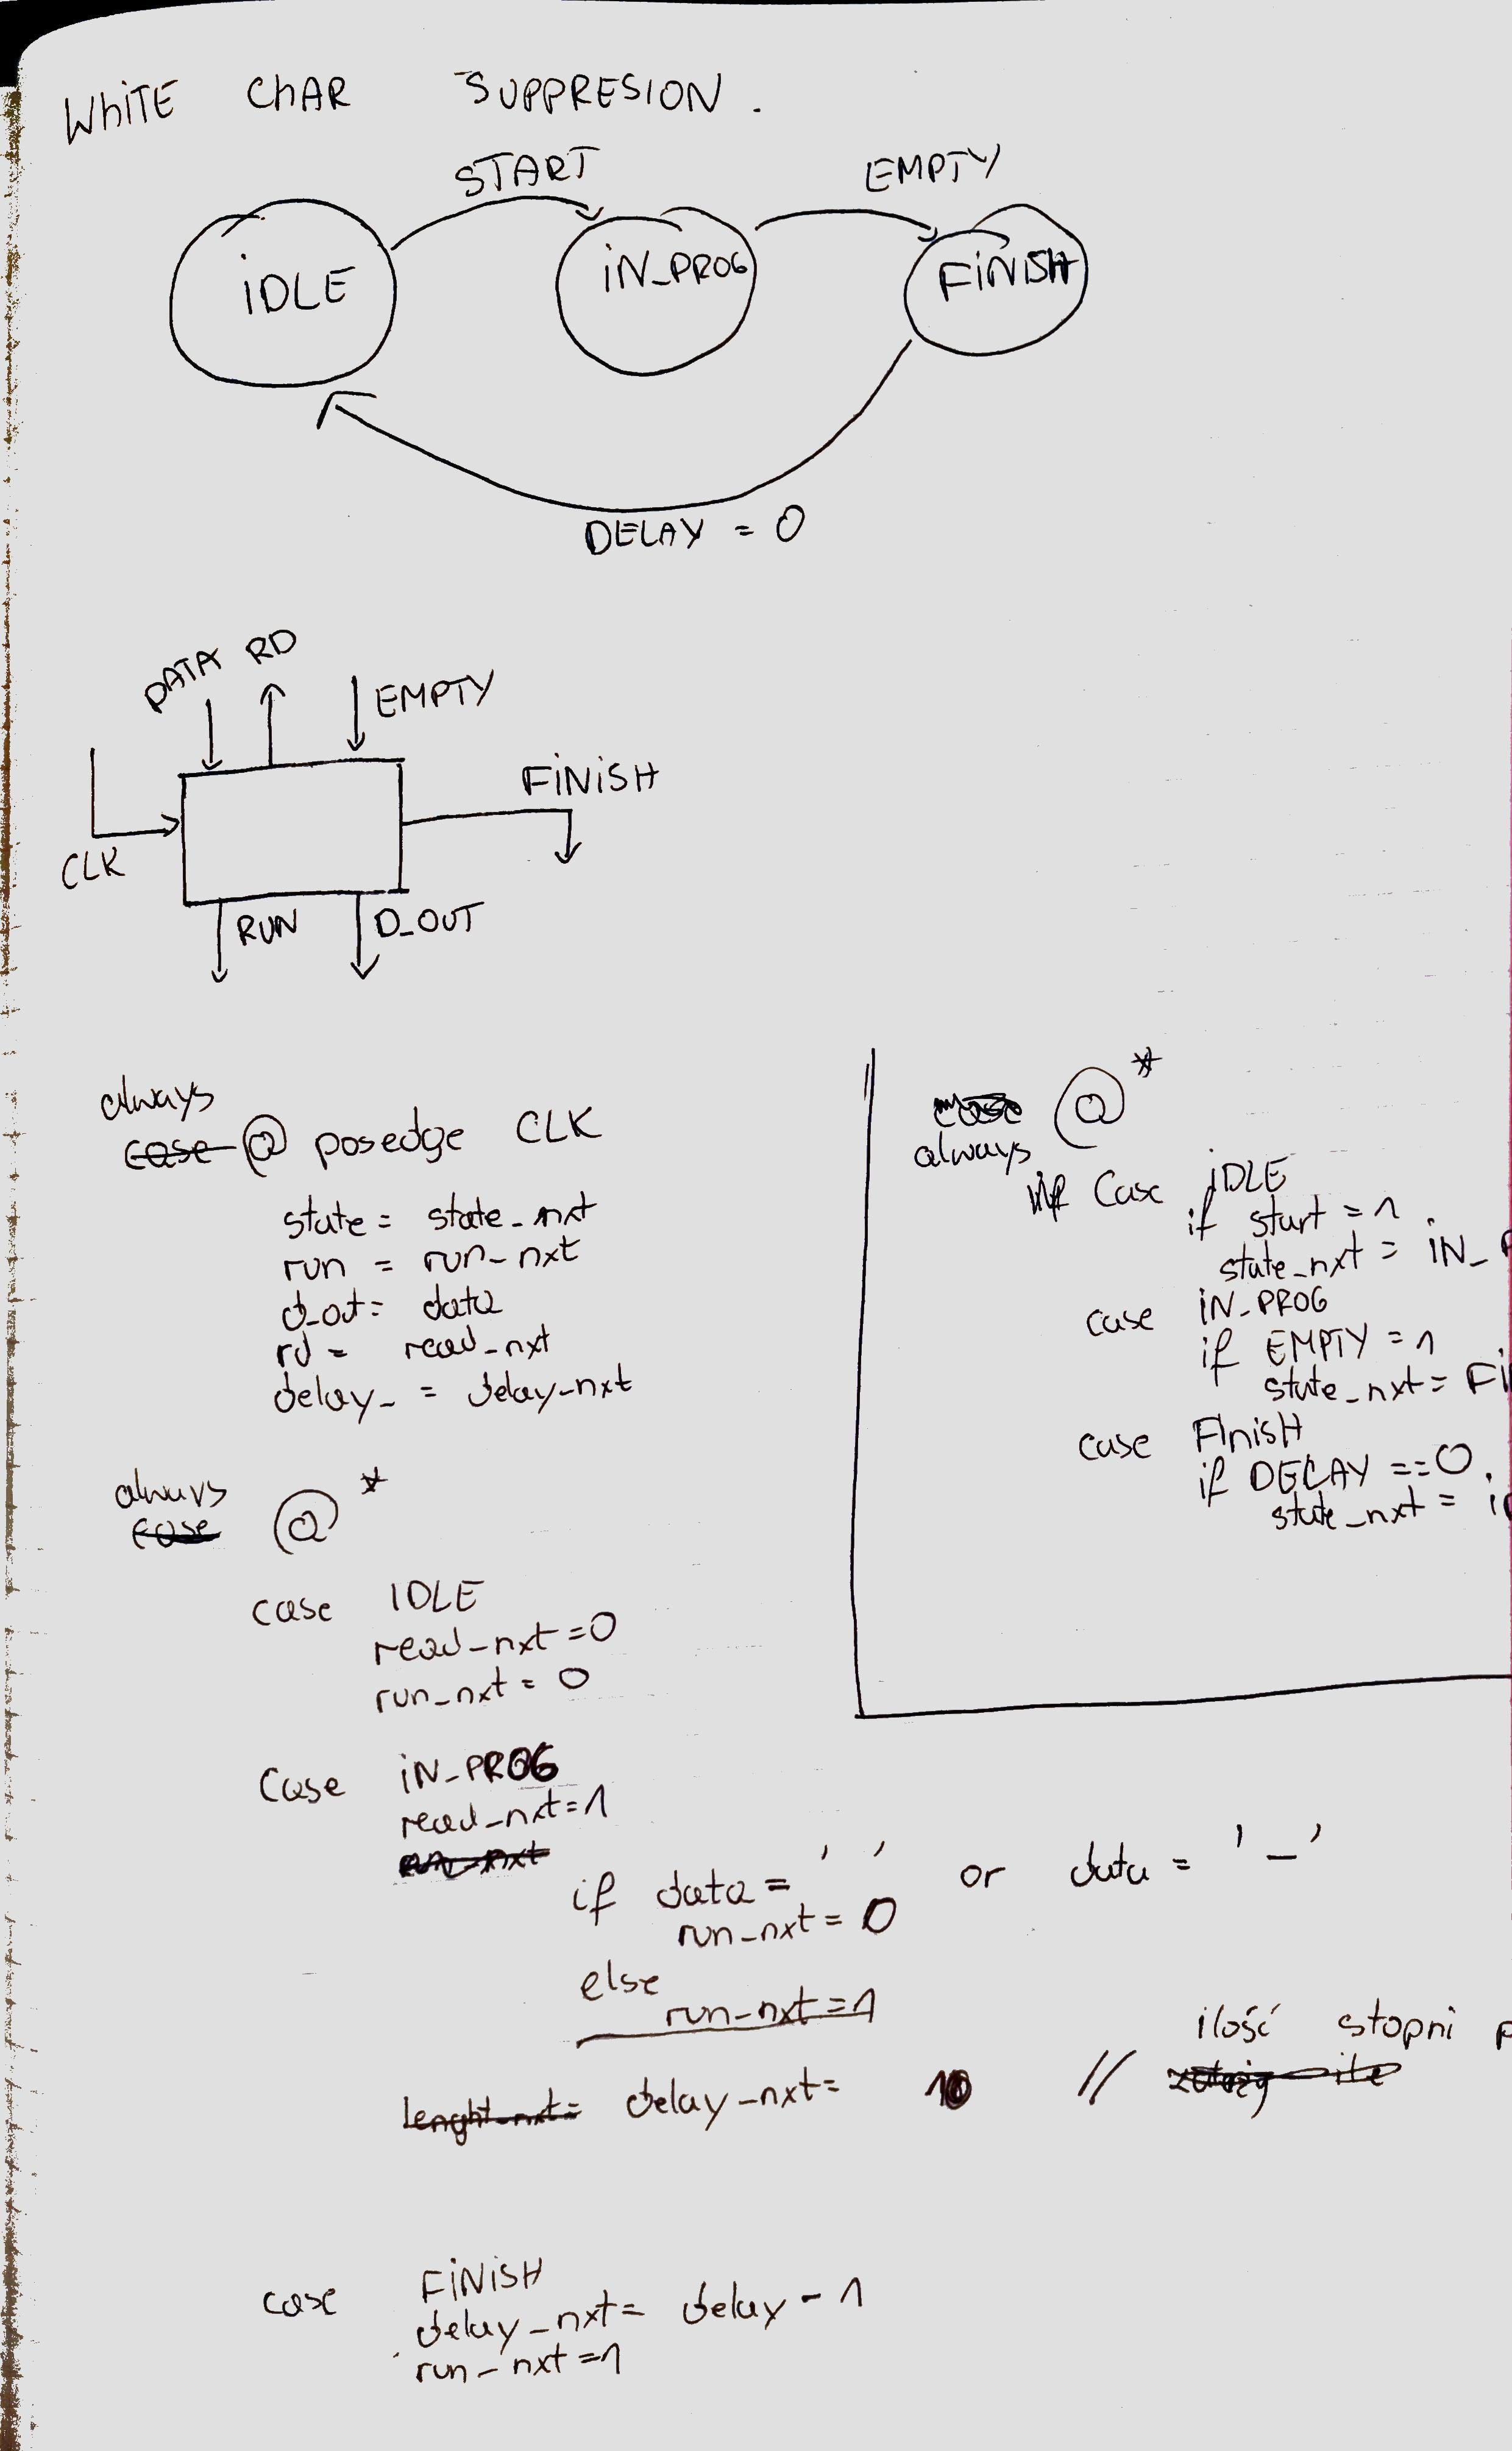 WhiTE ChAR SUPPRESION.
START
EMPTY
iDLE
iN_PROG
FiNiSH
DELAY = 0
DATA RD
EMPTY
FiNiSH
CLK
RUN
D_OUT
always
case @ posedge CLK
state = state_nxt
run = run_nxt
d_out = data
rd = read_nxt
delay_ = delay_nxt
always
case @ *
case IDLE
read_nxt = 0
run_nxt = 0
Case iN_PROG
read_nxt = 1
run_nxt
if data = ' ' or data = '_'
run_nxt = 0
else
run_nxt = 1
lenght_nxt = delay_nxt = 10 // ilość stopni p
case FiNiSH
delay_nxt = delay - 1
run_nxt = 1
case @ *
always
Case iDLE
if start = 1
state_nxt = iN_P
case iN_PROG
if EMPTY = 1
state_nxt = Fi
case FIniSH
if DELAY == 0.
state_nxt = iD